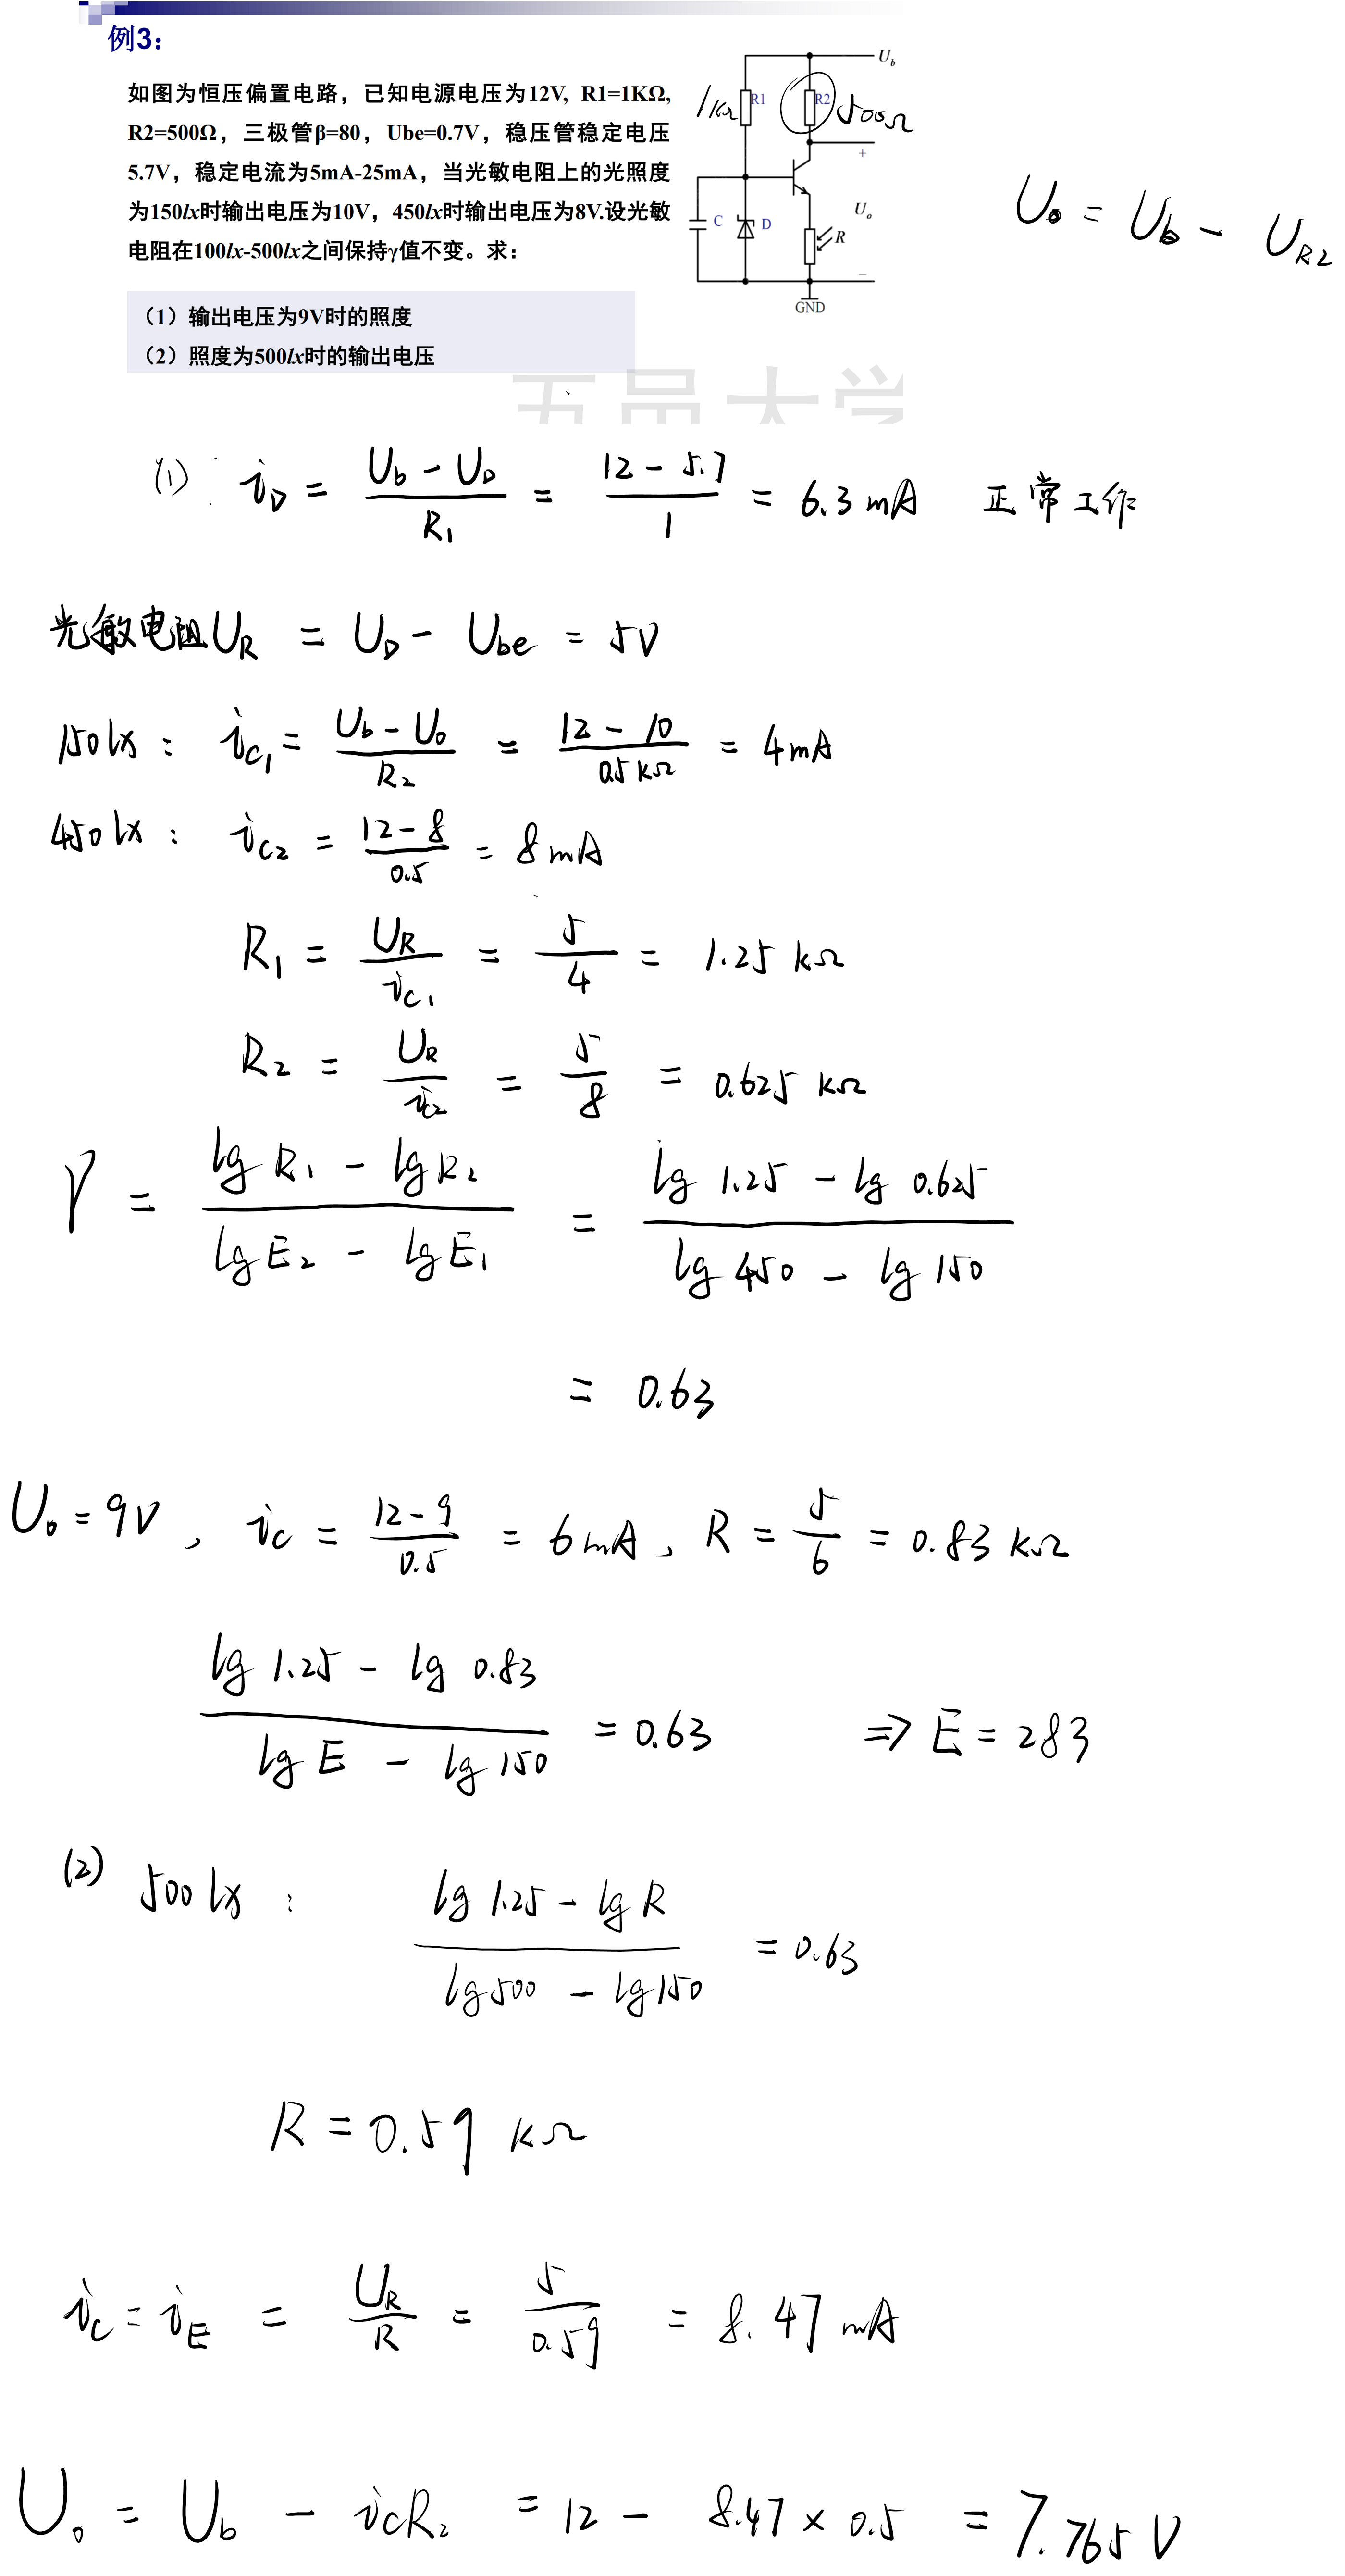 例3：
如图为恒压偏置电路，已知电源电压为12V, R1=1KΩ,
R2=500Ω，三极管β=80，Ube=0.7V，稳压管稳定电压
5.7V，稳定电流为5mA-25mA，当光敏电阻上的光照度
为150lx时输出电压为10V，450lx时输出电压为8V.设光敏
电阻在100lx-500lx之间保持γ值不变。求：
（1）输出电压为9V时的照度
（2）照度为500lx时的输出电压
U_b
1kΩ R1 R2 500Ω
+
C D U_o R
−
GND
U_o = U_b - U_R2
(1) i_D = (U_b - U_D)/R_1 = (12 - 5.7)/1 = 6.3 mA 正常工作
光敏电阻 U_R = U_D - U_be = 5V
150lx : i_C1 = (U_b - U_o)/R_2 = (12 - 10)/0.5kΩ = 4mA
450lx : i_C2 = (12 - 8)/0.5 = 8mA
R_1 = U_R/i_C1 = 5/4 = 1.25 kΩ
R_2 = U_R/i_C2 = 5/8 = 0.625 kΩ
γ = (lg R_1 - lg R_2)/(lg E_2 - lg E_1) = (lg 1.25 - lg 0.625)/(lg 450 - lg 150)
= 0.63
U_o = 9V , i_C = (12 - 9)/0.5 = 6mA , R = 5/6 = 0.83 kΩ
(lg 1.25 - lg 0.83)/(lg E - lg 150) = 0.63 ⇒ E = 283
(2) 500lx : (lg 1.25 - lg R)/(lg 500 - lg 150) = 0.63
R = 0.59 kΩ
i_C = i_E = U_R/R = 5/0.59 = 8.47 mA
U_o = U_b - i_C R_2 = 12 - 8.47 × 0.5 = 7.765 V